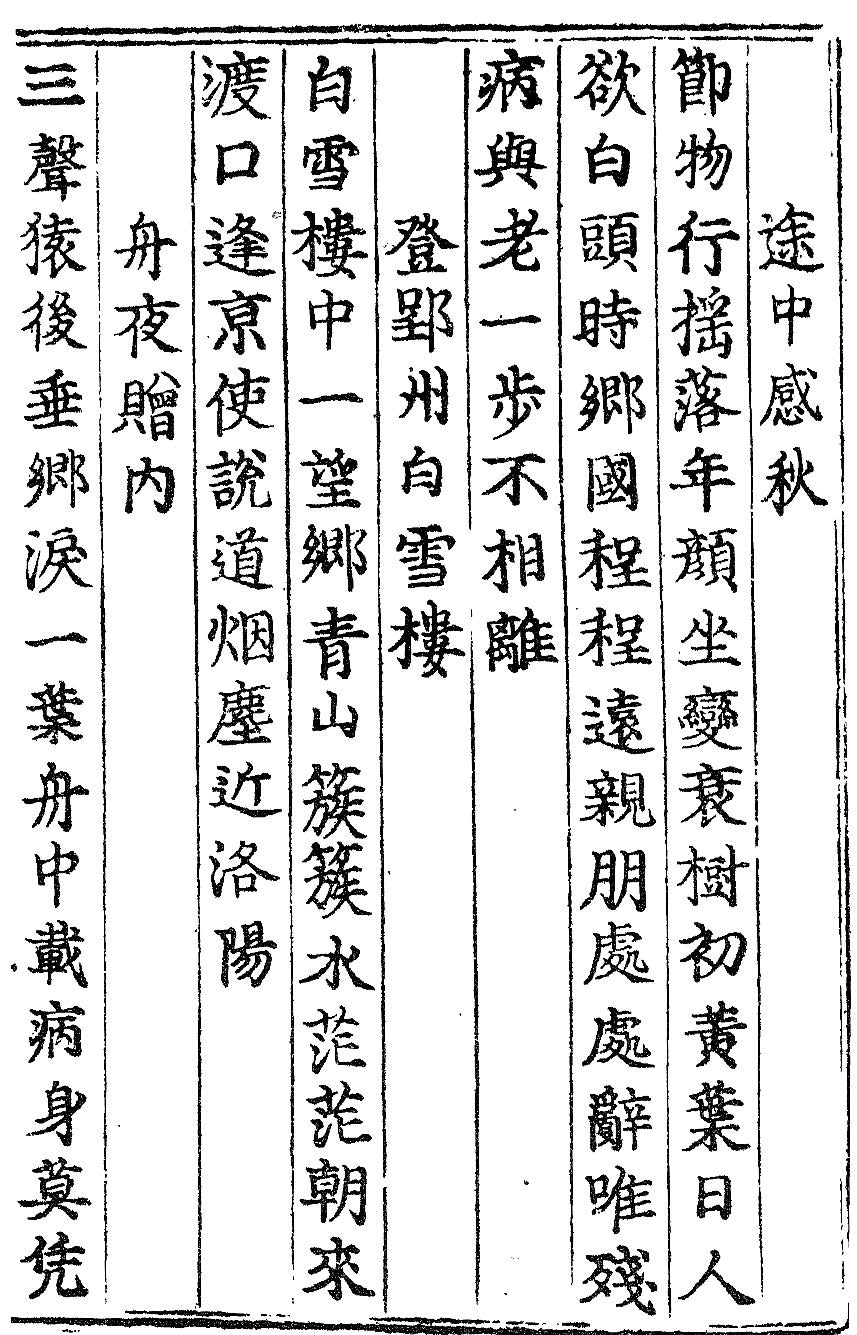 途中感秋
節物行搖落年顔坐變衰樹初黃葉日人
欲白頭時鄉國程程遠親朋處處辭唯殘
病與老一步不相離
登郢州白雪樓
白雪樓中一望鄉青山簇簇水茫茫朝來
渡口逢京使說道烟塵近洛陽
舟夜贈內
三聲猿後垂鄉淚一葉舟中載病身莫凭